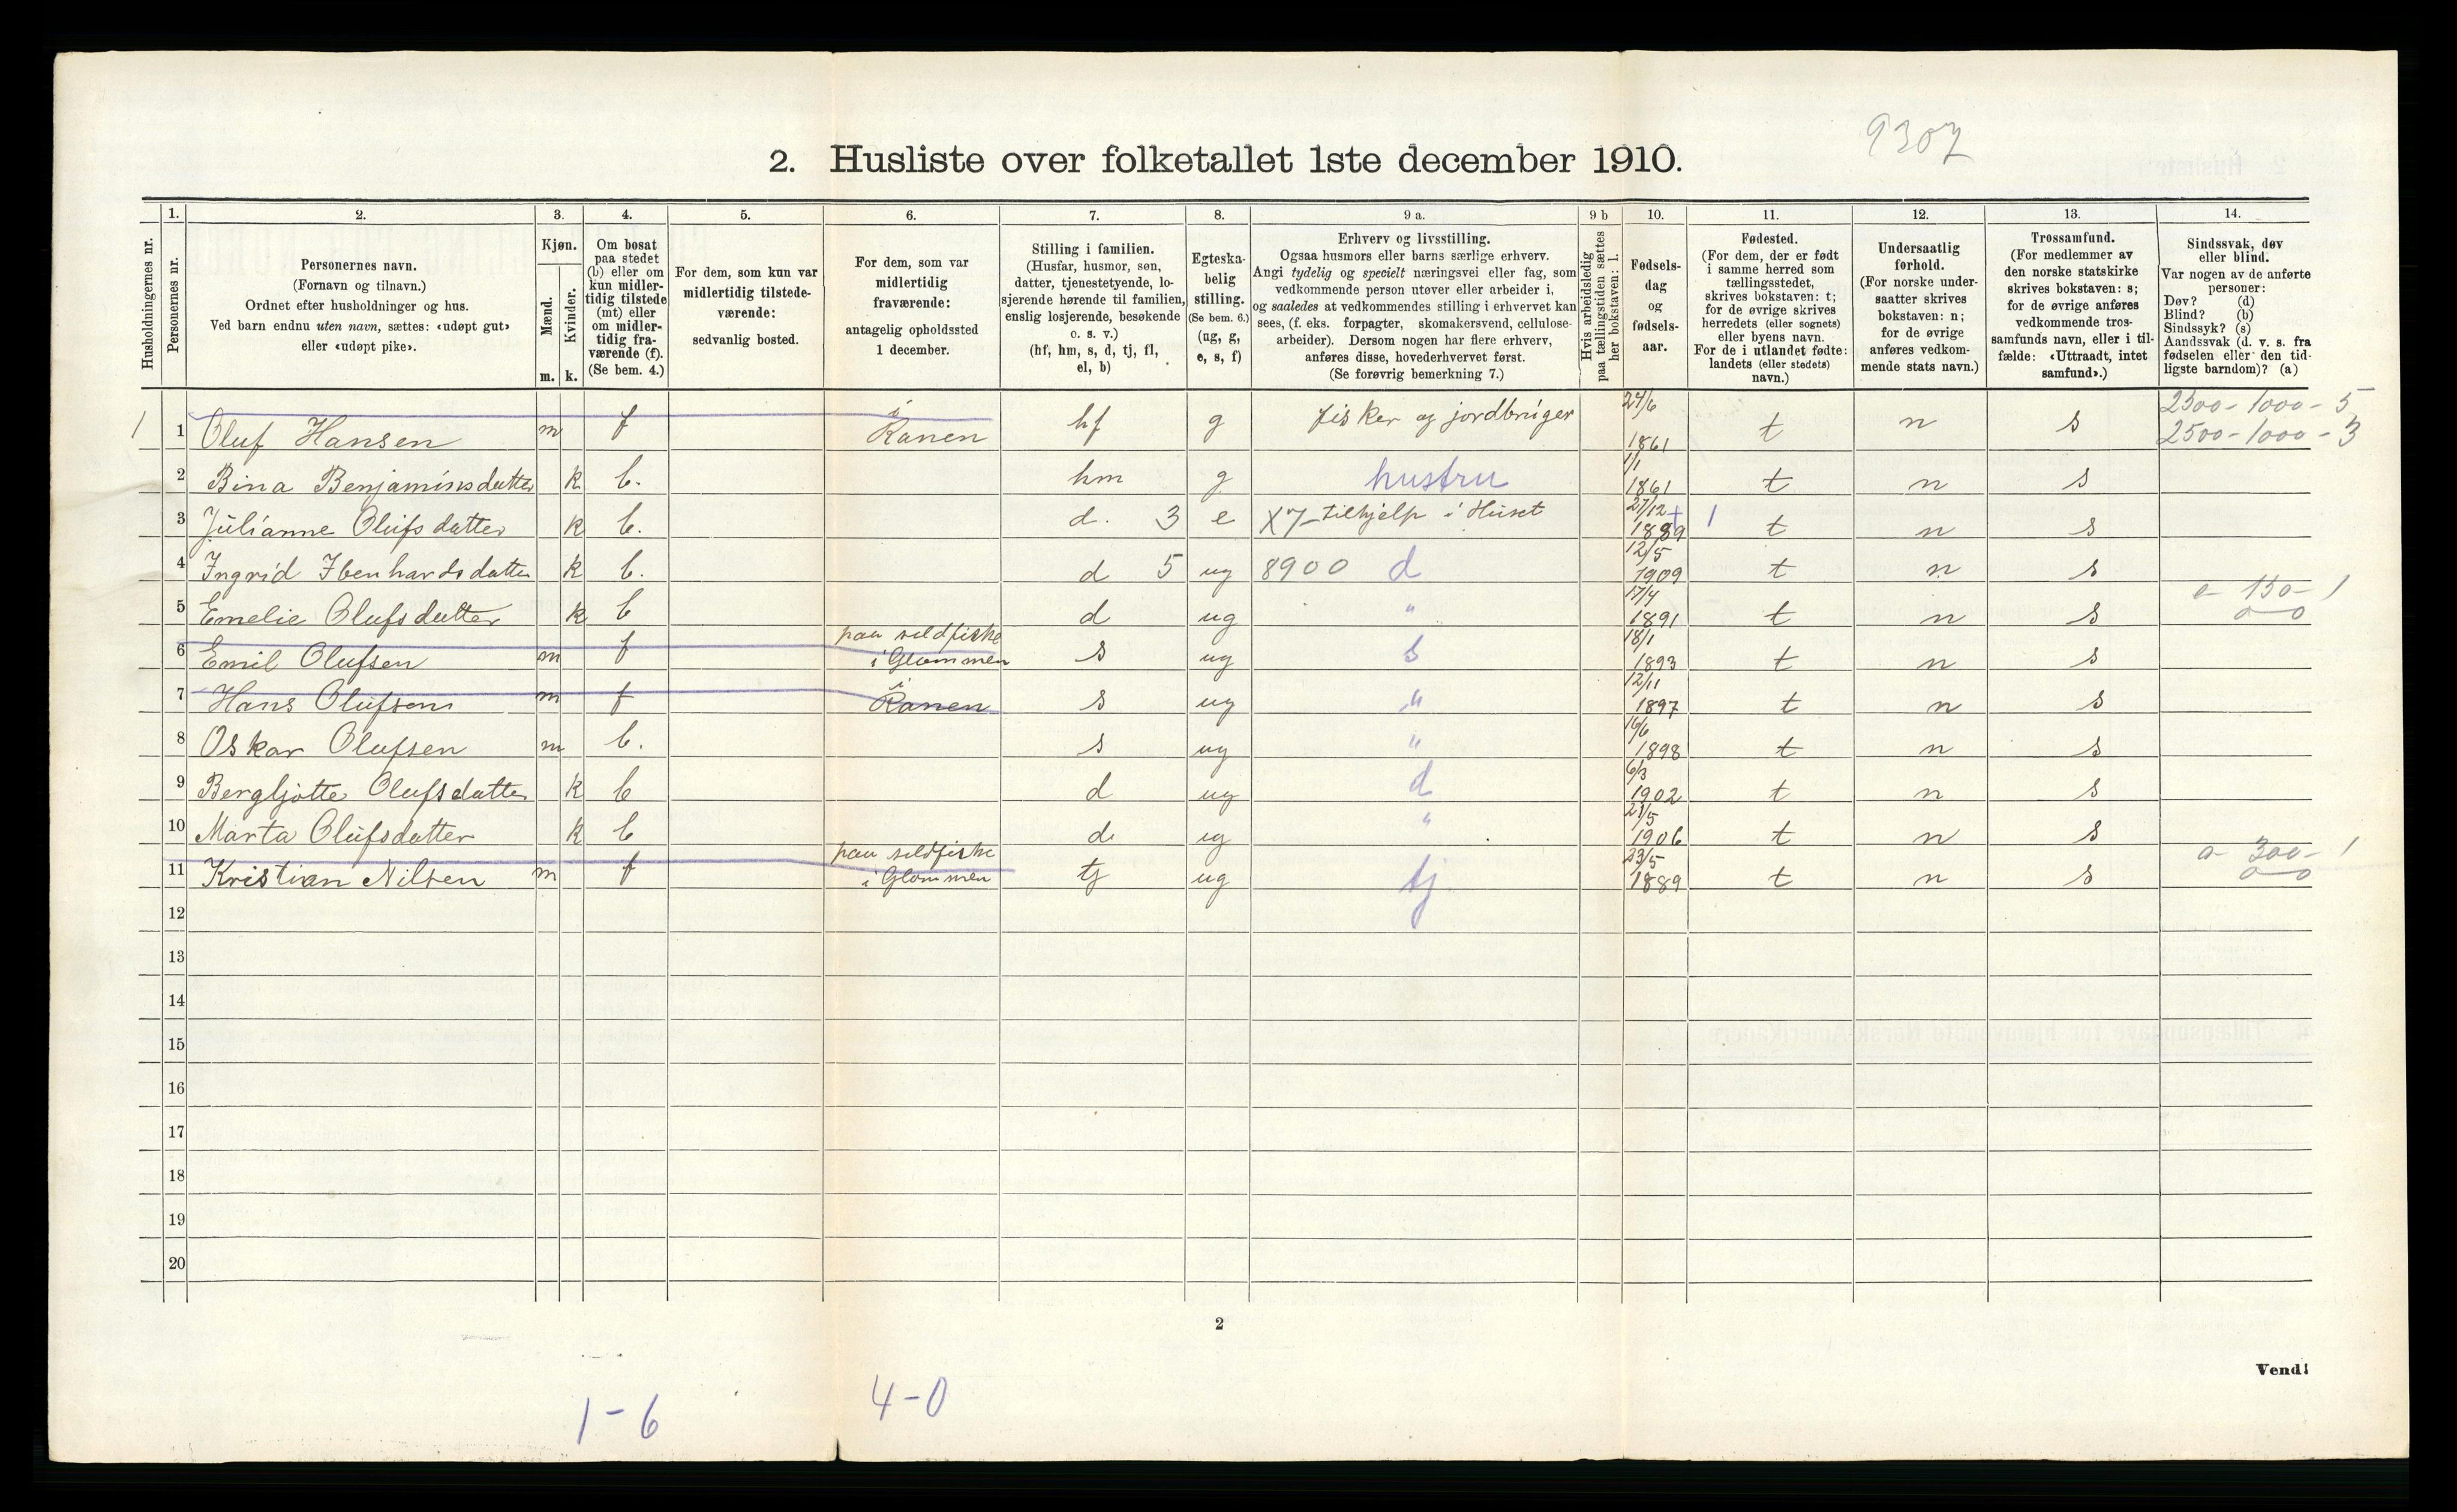 9307
2. Husliste over folketallet 1ste december 1910.
Husholdningernes nr.
1. Personernes nr.
2. Personernes navn.
(Fornavn og tilnavn.)
Ordnet efter husholdninger og hus.
Ved barn endnu uten navn, sættes: «udøpt gut»
eller «udøpt pike».
3. Kjøn.
Mænd. m.
Kvinder. k.
4. Om bosat
paa stedet
(b) eller om
kun midler-
tidig tilstede
(mt) eller
om midler-
tidig fra-
værende (f).
(Se bem. 4.)
5. For dem, som kun var
midlertidig tilstede-
værende:
sedvanlig bosted.
6. For dem, som var
midlertidig
fraværende:
antagelig opholdssted
1 december.
7. Stilling i familien.
(Husfar, husmor, søn,
datter, tjenestetyende, lo-
sjerende hørende til familien,
enslig losjerende, besøkende
o. s. v.)
(hf, hm, s, d, tj, fl,
el, b)
8. Egteska-
belig
stilling.
(Se bem. 6.)
(ug, g,
e, s, f)
9 a. Erhverv og livsstilling.
Ogsaa husmors eller barns særlige erhverv.
Angi tydelig og specielt næringsvei eller fag, som
vedkommende person utøver eller arbeider i,
og saaledes at vedkommendes stilling i erhvervet kan
sees, (f. eks. forpagter, skomakersvend, cellulose-
arbeider). Dersom nogen har flere erhverv,
anføres disse, hovederhvervet først.
(Se forøvrig bemerkning 7.)
9 b Hvis arbeidsledig
paa tællingstiden sættes
her bokstaven: l.
10. Fødsels-
dag
og
fødsels-
aar.
11. Fødested.
(For dem, der er født
i samme herred som
tællingsstedet,
skrives bokstaven: t;
for de øvrige skrives
herredets (eller sognets)
eller byens navn.
For de i utlandet fødte:
landets (eller stedets)
navn.)
12. Undersaatlig
forhold.
(For norske under-
saatter skrives
bokstaven: n;
for de øvrige
anføres vedkom-
mende stats navn.)
13. Trossamfund.
(For medlemmer av
den norske statskirke
skrives bokstaven: s;
for de øvrige anføres
vedkommende tros-
samfunds navn, eller i til-
fælde: «Uttraadt, intet
samfund».)
14. Sindssvak, døv
eller blind.
Var nogen av de anførte
personer:
Døv? (d)
Blind? (b)
Sindssyk? (s)
Aandssvak (d. v. s. fra
fødselen eller den tid-
ligste barndom)? (a)
1 1 Oluf Hansen m f i Ranen hf g fisker og jordbruger 24/6 1861 t n s 2500-1000-5
2500-1000-3
2 Bina Benjaminsdatter k b. hm g hustru 1/1 1861 t n s
3 Julianne Olufsdatter k b. d. 3 e X7- tilhjelp i Huset 27/12 1889 1 t n s
4 Ingrid Ibenhardsdatter k b. d 5 ug 8900 d 12/5 1909 t n s
5 Emelie Olufsdatter k b d ug " 17/4 1891 t n s 0-150-1
0-0
6 Emil Olufsen m f paa sildfiske i Glommen s ug s 18/1 1893 t n s
7 Hans Olufsen m f i Ranen s ug " 12/11 1897 t n s
8 Oskar Olufsen m b. s ug " 16/6 1898 t n s
9 Bergljotte Olufsdatter k b d ug d 6/3 1902 t n s
10 Marta Olufsdatter k b d ug " 21/5 1906 t n s
11 Kristian Nilsen m f paa sildfiske i Glommen tj ug tj 23/5 1889 t n s 0-300-1
0-0
12
13
14
15
16
17
18
19
20
2
Vend!
1-6
4-0